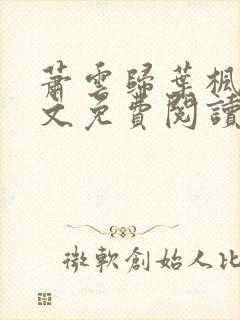 蕭雲歸葉楓
文免費閱讀
微軟創始人比